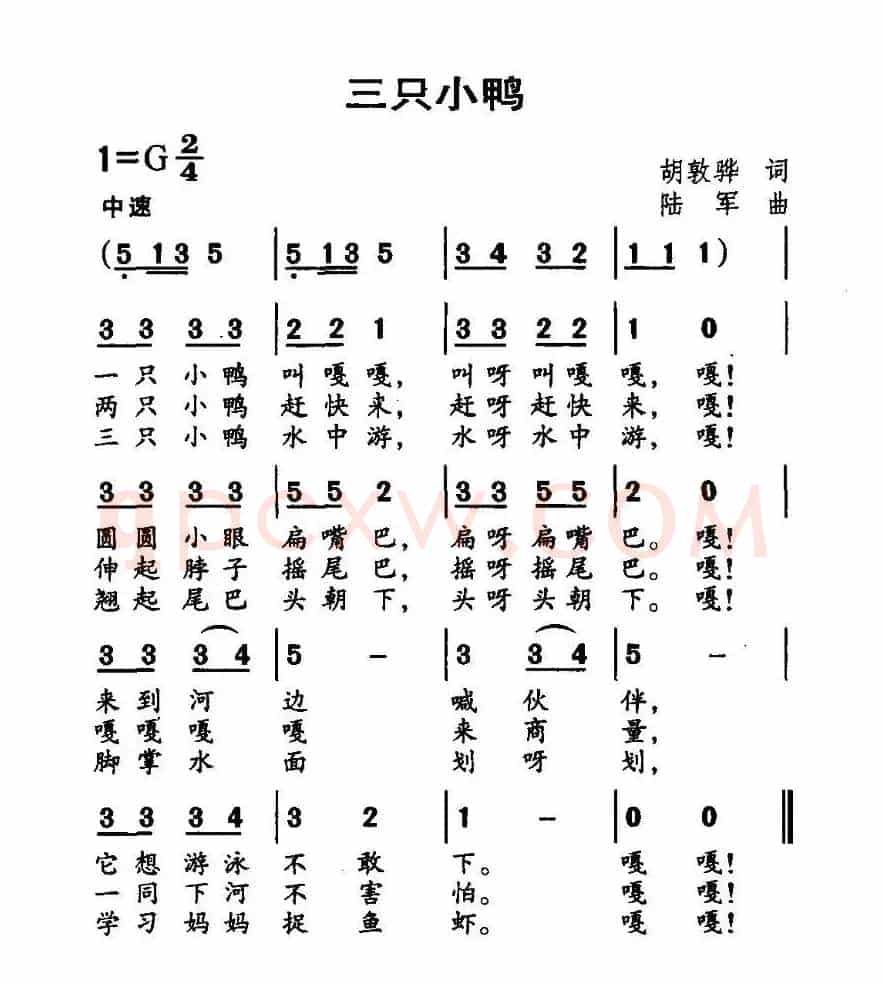 三只小鸭
1=G 2/4
胡敦骅 词
中速
陆 军 曲
(5 13 5 | 5 13 5 | 3 4 3 2 | 1 1 1) |
3 3 3 3 | 2 2 1 | 3 3 2 2 | 1 0 |
一只小鸭 叫嘎嘎, 叫呀叫嘎嘎, 嘎!
两只小鸭 赶快来, 赶呀赶快来, 嘎!
三只小鸭 水中游, 水呀水中游, 嘎!
3 3 3 3 | 5 5 2 | 3 3 5 5 | 2 0 |
圆圆小眼 扁嘴巴, 扁呀扁嘴巴。 嘎!
伸起脖子 摇尾巴, 摇呀摇尾巴。 嘎!
翘起尾巴 头朝下, 头呀头朝下。 嘎!
3 3 3 4 | 5 - | 3 3 4 | 5 - |
来到河边 喊伙伴,
嘎嘎嘎嘎 来商量,
脚掌水面 划呀划,
3 3 3 4 | 3 2 | 1 - | 0 0 ‖
它想游泳不敢下。 嘎嘎!
一同下河不害怕。 嘎嘎!
学习妈妈捉鱼虾。 嘎嘎!
qpcxw.COM